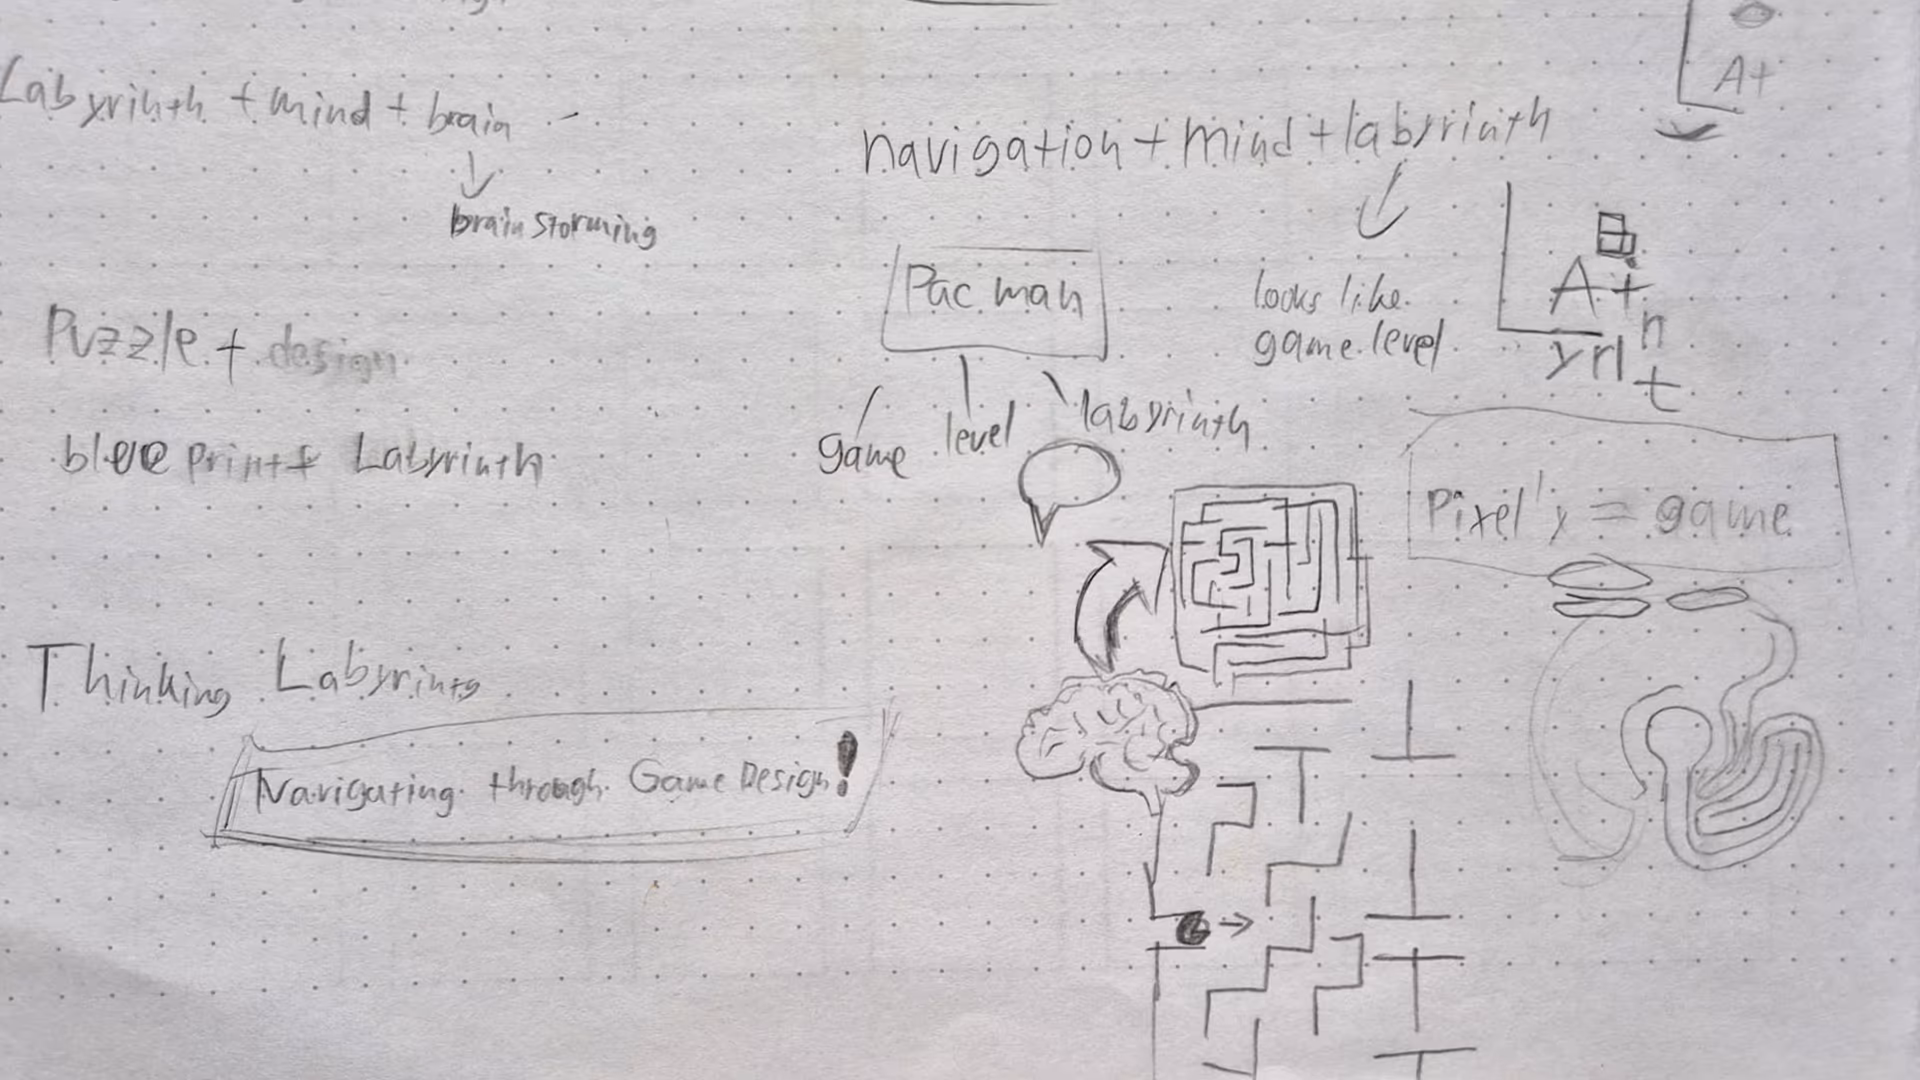 Labyrinth + mind + brain
brain storming
navigation + mind + labyrinth
A+
Pac man
looks like
game level
A+
yrin
t
Puzzle + design
game level labyrinth
blueprint + Labyrinth
Pixel'y = game
Thinking Labyrints
Navigating through Game Design!